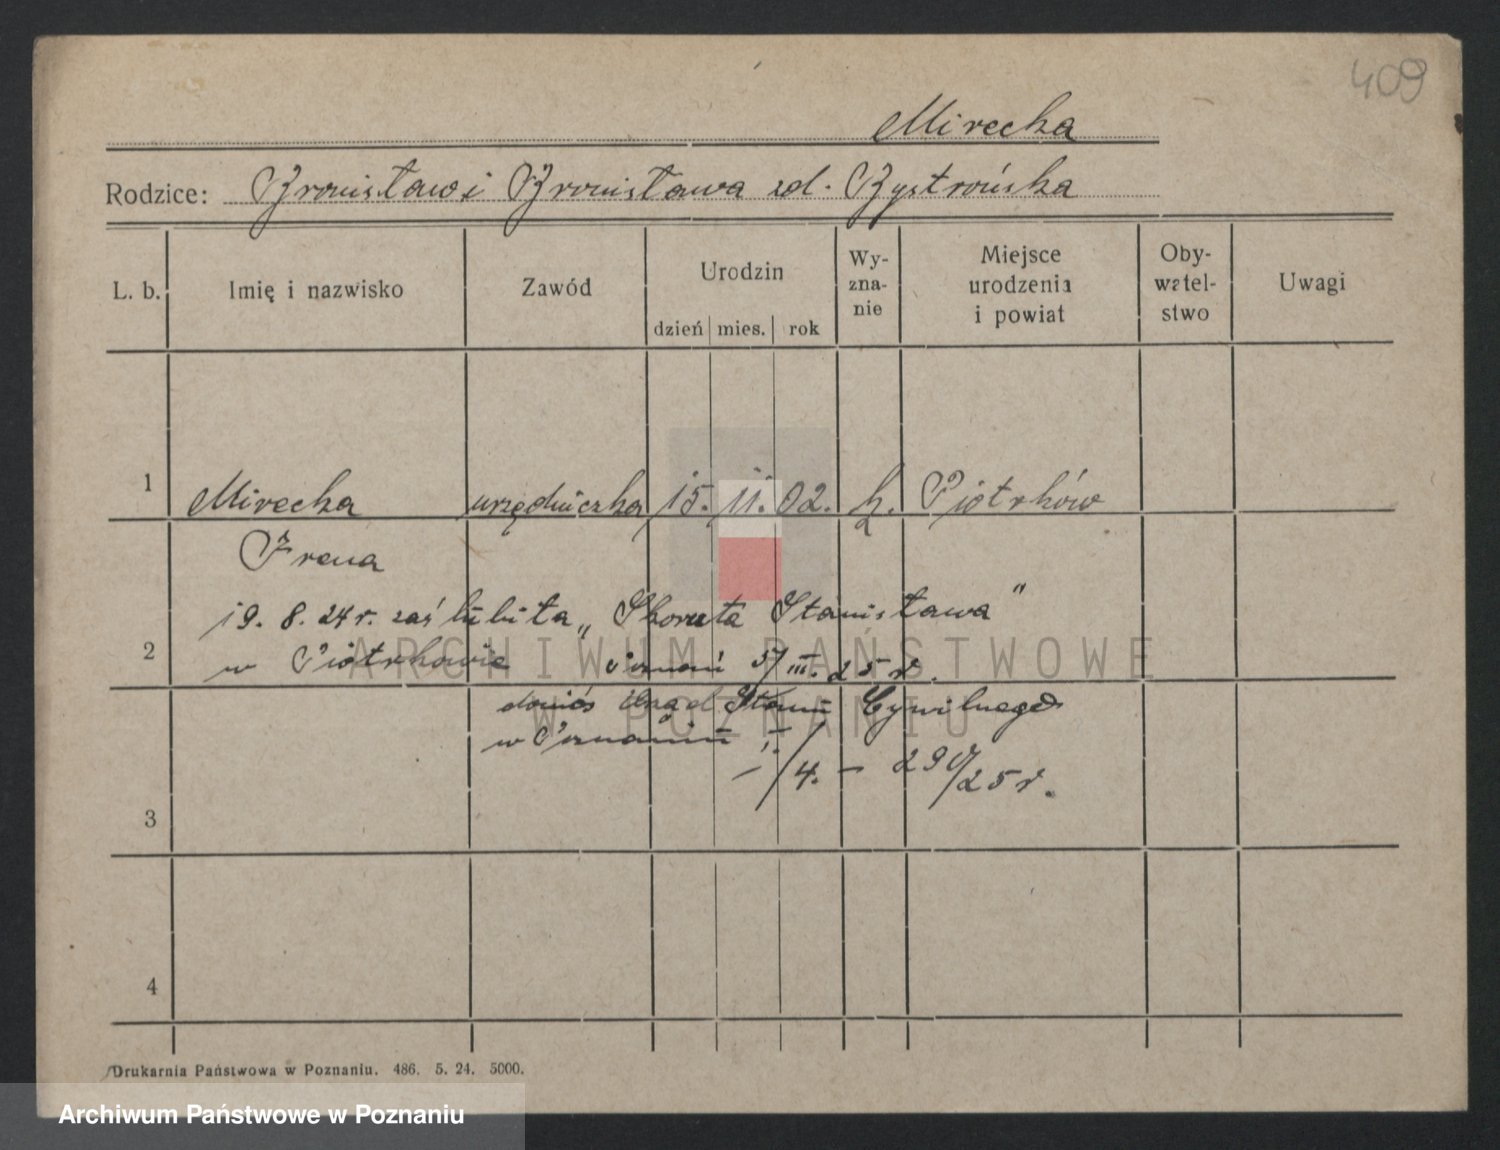 409
Mirecka
Rodzice: Bronisław i Bronisława zd. Bystrońska
L. b. Imię i nazwisko Zawód Urodzin Wy-zna-nie Miejsce urodzenia i powiat Oby-watel-stwo Uwagi
dzień mies. rok
1 Mirecka urzędniczka 15. 11. 02. k. Piotrków
Irena
19. 8. 24 r. zaślubiła „Skorata Stanisława"
2 w Piotrkowie Poznań 5/III. 25 r.
doniós Urząd Stanu Cywilnego
w Poznaniu I.
– / 4. – 290/25 r.
3
4
Drukarnia Państwowa w Poznaniu. 486. 5. 24. 5000.
ARCHIWUM PAŃSTWOWE
W POZNANIU
Archiwum Państwowe w Poznaniu